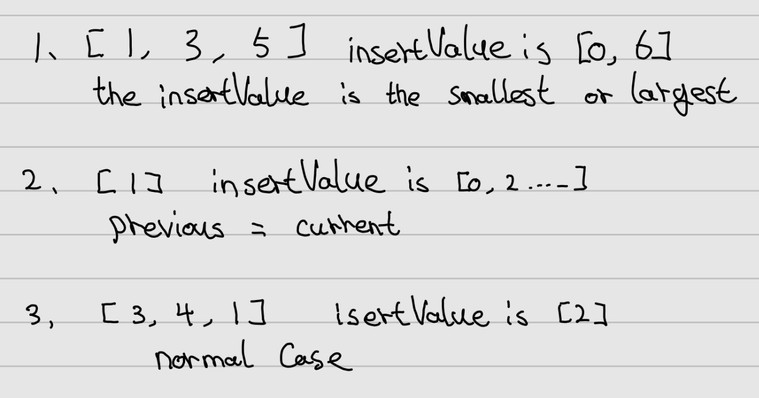 1、 [ 1, 3, 5 ] insertValue is [0, 6]
the insertValue is the smallest or largest
2、 [1] insertValue is [0, 2 ....-]
previous = current
3, [ 3, 4, 1 ] isertValue is [2]
normal Case